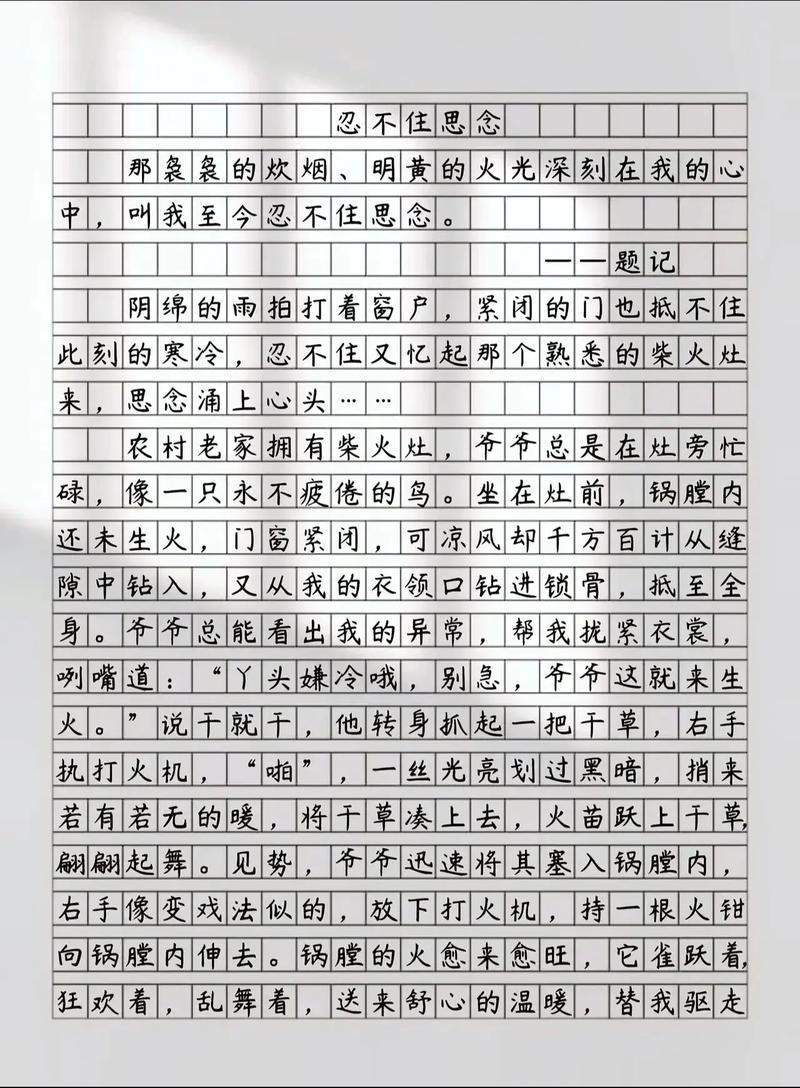 忍不住思念
那袅袅的炊烟、明黄的火光深刻在我的心
中，叫我至今忍不住思念。
——题记
阴绵的雨拍打着窗户，紧闭的门也抵不住
此刻的寒冷，忍不住又忆起那个熟悉的柴火灶
来，思念涌上心头……
农村老家拥有柴火灶，爷爷总是在灶旁忙
碌，像一只永不疲倦的鸟。坐在灶前，锅膛内
还未生火，门窗紧闭，可凉风却千方百计从缝
隙中钻入，又从我的衣领口钻进锁骨，抵至全
身。爷爷总能看出我的异常，帮我拢紧衣裳，
咧嘴道：“丫头嫌冷哦，别急，爷爷这就来生
火。”说干就干，他转身抓起一把干草，右手
执打火机，“啪”，一丝光亮划过黑暗，捎来
若有若无的暖，将干草凑上去，火苗跃上干草，
翩翩起舞。见势，爷爷迅速将其塞入锅膛内，
右手像变戏法似的，放下打火机，持一根火钳
向锅膛内伸去。锅膛的火愈来愈旺，它雀跃着，
狂欢着，乱舞着，送来舒心的温暖，替我驱走